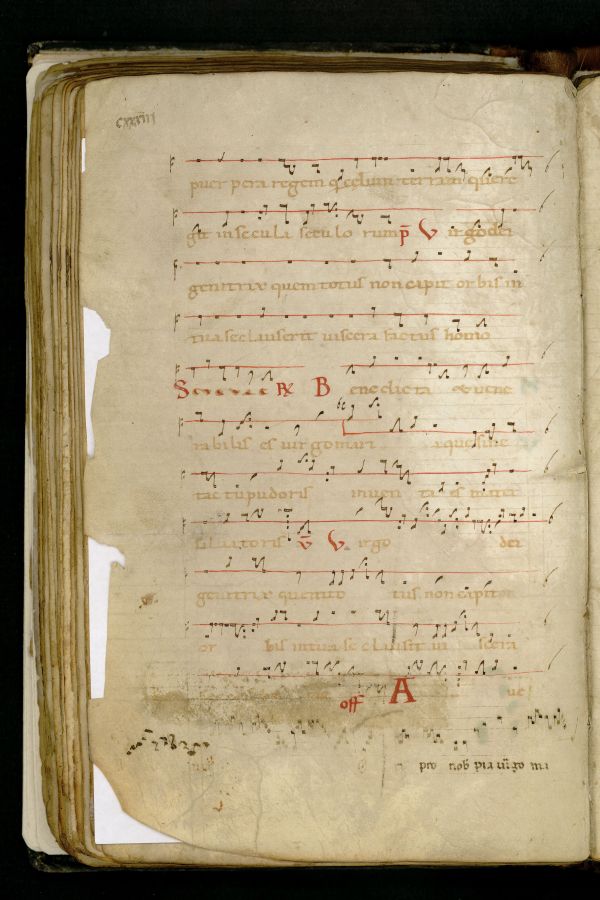 cxxxiii
puerpera regem q celum terram quere
git in secula seculo rum p̄ V irgo dei
genitrix quem totus non capit orbis in
tua se clauserit uiscera factus homo
S R B ene dicta et uene
rabilis es uirgo mari a que sine
tac tu pudoris inuen ta es mater
saluatoris v̄ V irgo dei
genitrix quemtot tus non capitor
or bis intua se clausit ui scera
off A ue
pro nob pia uirgo ma